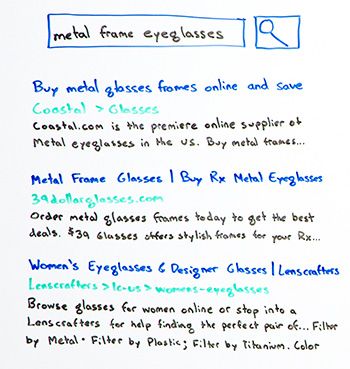 metal frame eyeglasses
Buy metal glasses frames online and save
Coastal > Glasses
Coastal.com is the premiere online supplier of
Metal eyeglasses in the US. Buy metal frames...
Metal Frame Glasses | Buy Rx Metal Eyeglasses
39dollarglasses.com
Order metal glasses frames today to get the best
deals. $39 Glasses offers stylish frames for your Rx...
Women's Eyeglasses & Designer Glasses | Lenscrafters
Lenscrafters > lc-us > womens-eyeglasses
Browse glasses for women online or stop into a
Lenscrafters for help finding the perfect pair of... Filter
by Metal · Filter by Plastic; Filter by Titanium. Color